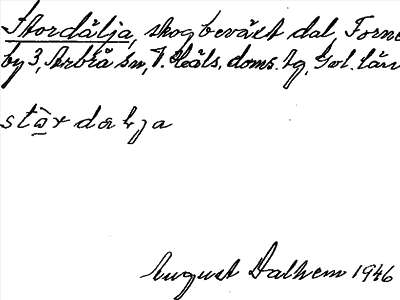 Stordälja, skogbeväxt dal, Forne
by 3, Arbrå sn, V. Häls. doms. tg, Gvl. län
August Dalhem 1946